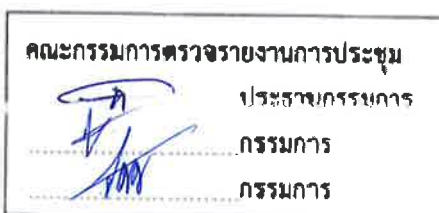 คณะกรรมการตรวจรายงานการประชุม
ประธานกรรมการ
กรรมการ
กรรมการ